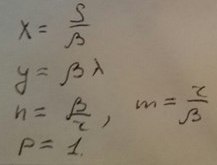 x = S/β
y = βλ
n = β/τ, m = τ/β
P = 1